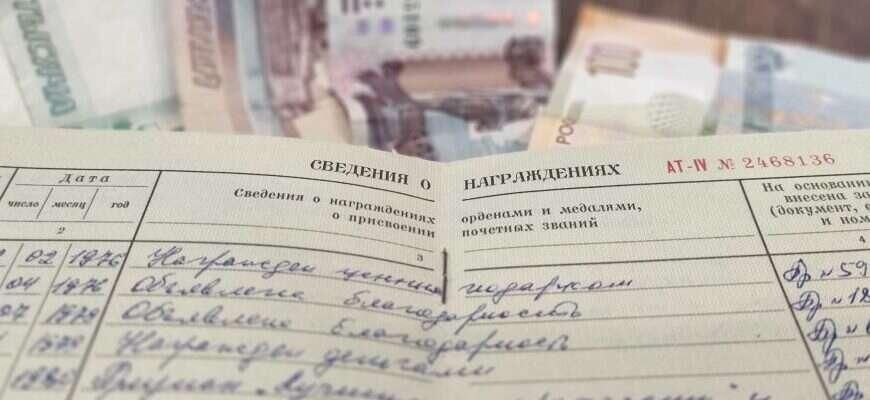 100
СВЕДЕНИЯ О НАГРАЖДЕНИЯХ АТ-IV № 2468136
Дата
число месяц год
Сведения о награждениях орденами и медалями,
о присвоении почетных званий
На основани
внесена за
(документ, е
и ном
2 3 4
02 1976 Награжден ценным подарком Пр №59
04 1976 Объявлена благодарность Пр №12
07 1979 Объявлена благодарность Пр №
Награжден деньгами